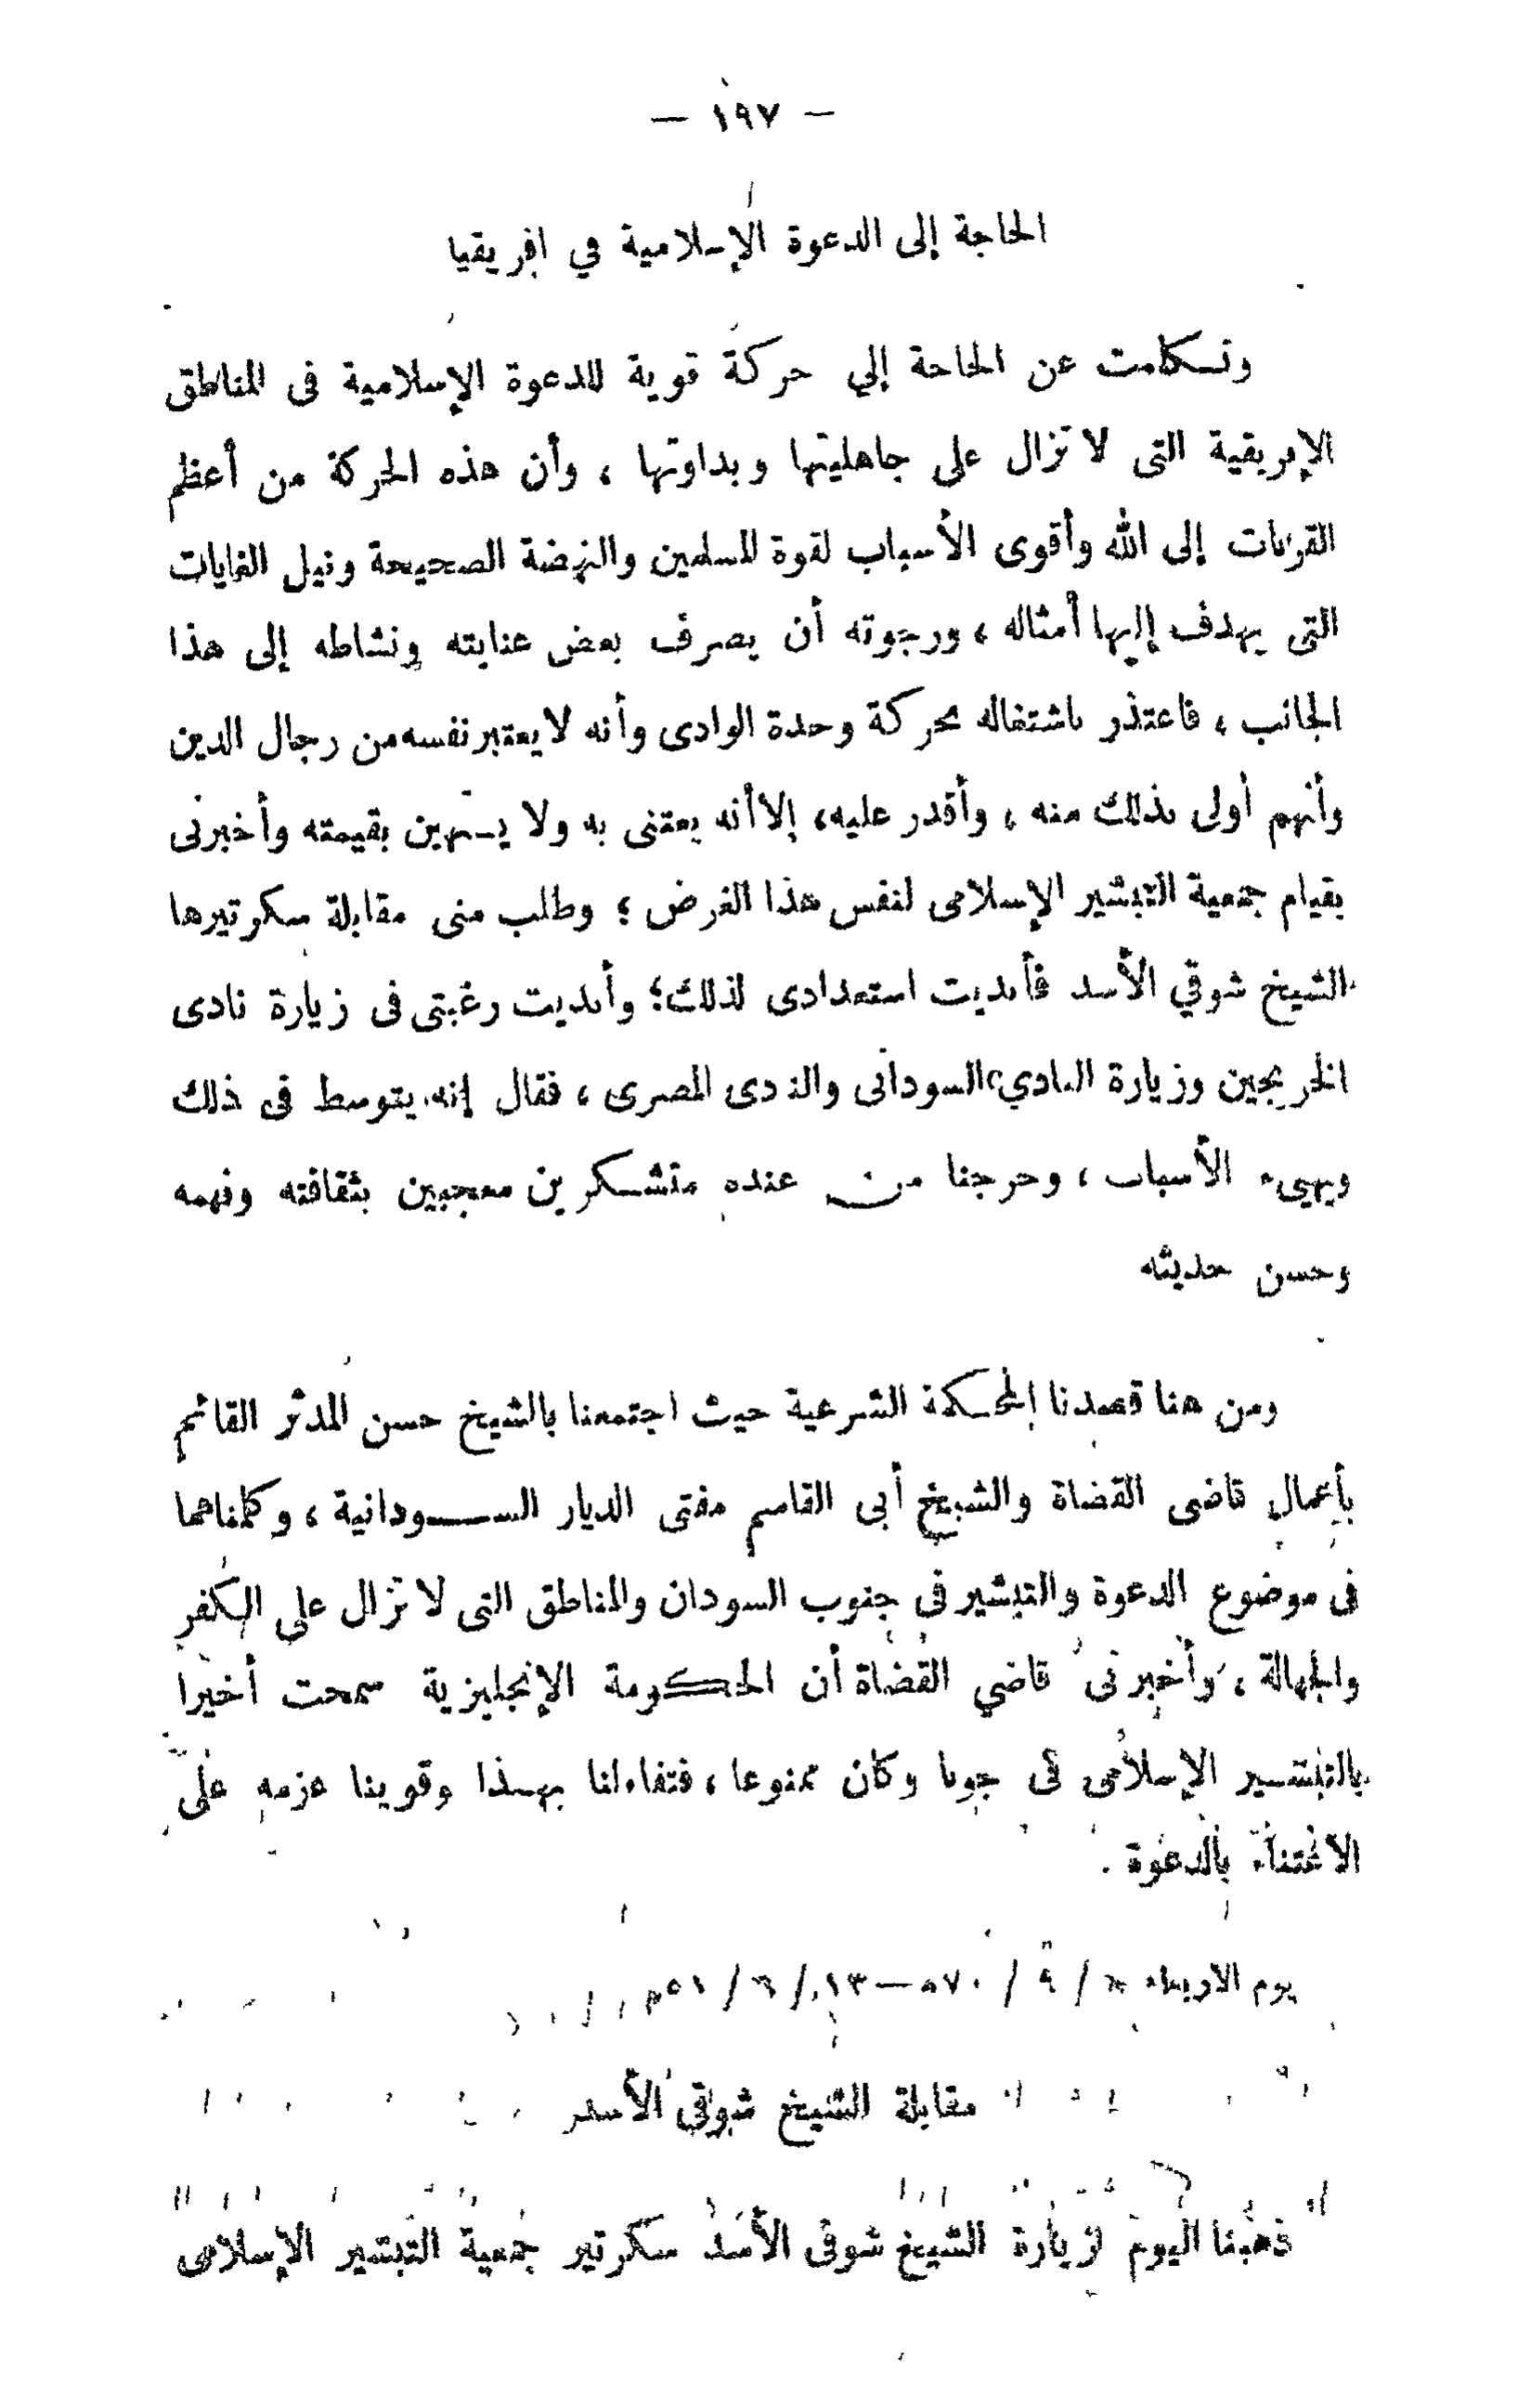 — ١٩٧ —
الحاجة إلى الدعوة الإسلامية في افريقيا
وتكلمت عن الحاجة إلي حركة قوية للدعوة الإسلامية فى المناطق
الإفريقية التى لا تزال على جاهليتها وبداوتها ، وأن هذه الحركة من أعظم
القربات إلى الله وأقوى الأسباب لقوة المسلمين والنهضة الصحيحة ونيل الغايات
التى يهدف إليها أمثاله ، ورجوته أن يصرف بعض عنايته ونشاطه إلى هذا
الجانب ، فاعتذر باشتغاله بحركة وحدة الوادى وأنه لا يعتبر نفسه من رجال الدين
وأنهم أولى بذلك منه ، وأقدر عليه ، إلا أنه يعتنى به ولا يستهين بقيمته وأخبرنى
بقيام جمعية التبشير الإسلامى لنفس هذا الغرض ؛ وطلب منى مقابلة سكرتيرها
الشيخ شوقي الأسد فأبديت استعدادى لذلك ؛ وأبديت رغبتى فى زيارة نادى
الخريجين وزيارة النادي السودانى والنادى المصرى ، فقال إنه يتوسط فى ذلك
ويهيىء الأسباب ، وخرجنا من عنده متشكرين معجبين بثقافته وفهمه
وحسن حديثه
ومن هنا قصدنا المحكمة الشرعية حيث اجتمعنا بالشيخ حسن المدثر القائم
بأعمال قاضى القضاة والشيخ أبى القاسم مفتى الديار السودانية ، وكلمناهما
فى موضوع الدعوة والتبشير في جنوب السودان والمناطق التى لا تزال على الكفر
والجهالة ، وأخبرنى قاضي القضاة أن الحكومة الإنجليزية سمحت أخيرا
بالتبشير الإسلامى فى جوبا وكان ممنوعا ، فتفاءلنا بهذا وقوينا عزمه على
الاعتناء بالدعوة .
يوم الاربعاء / ٩ / ٧٠ هـ — ١٣ / ٦ / ٥١ م
مقابلة الشيخ شوقى الأسد
ذهبنا اليوم لزيارة الشيخ شوقى الأسد سكرتير جمعية التبشير الإسلامى